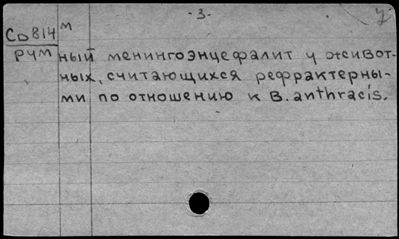 - 3 -
у
Сд814м
РЧМ
ный менингоэнцефалит у живот-
ных, считающихся рефрактерны-
ми по отношению к B. anthracis.